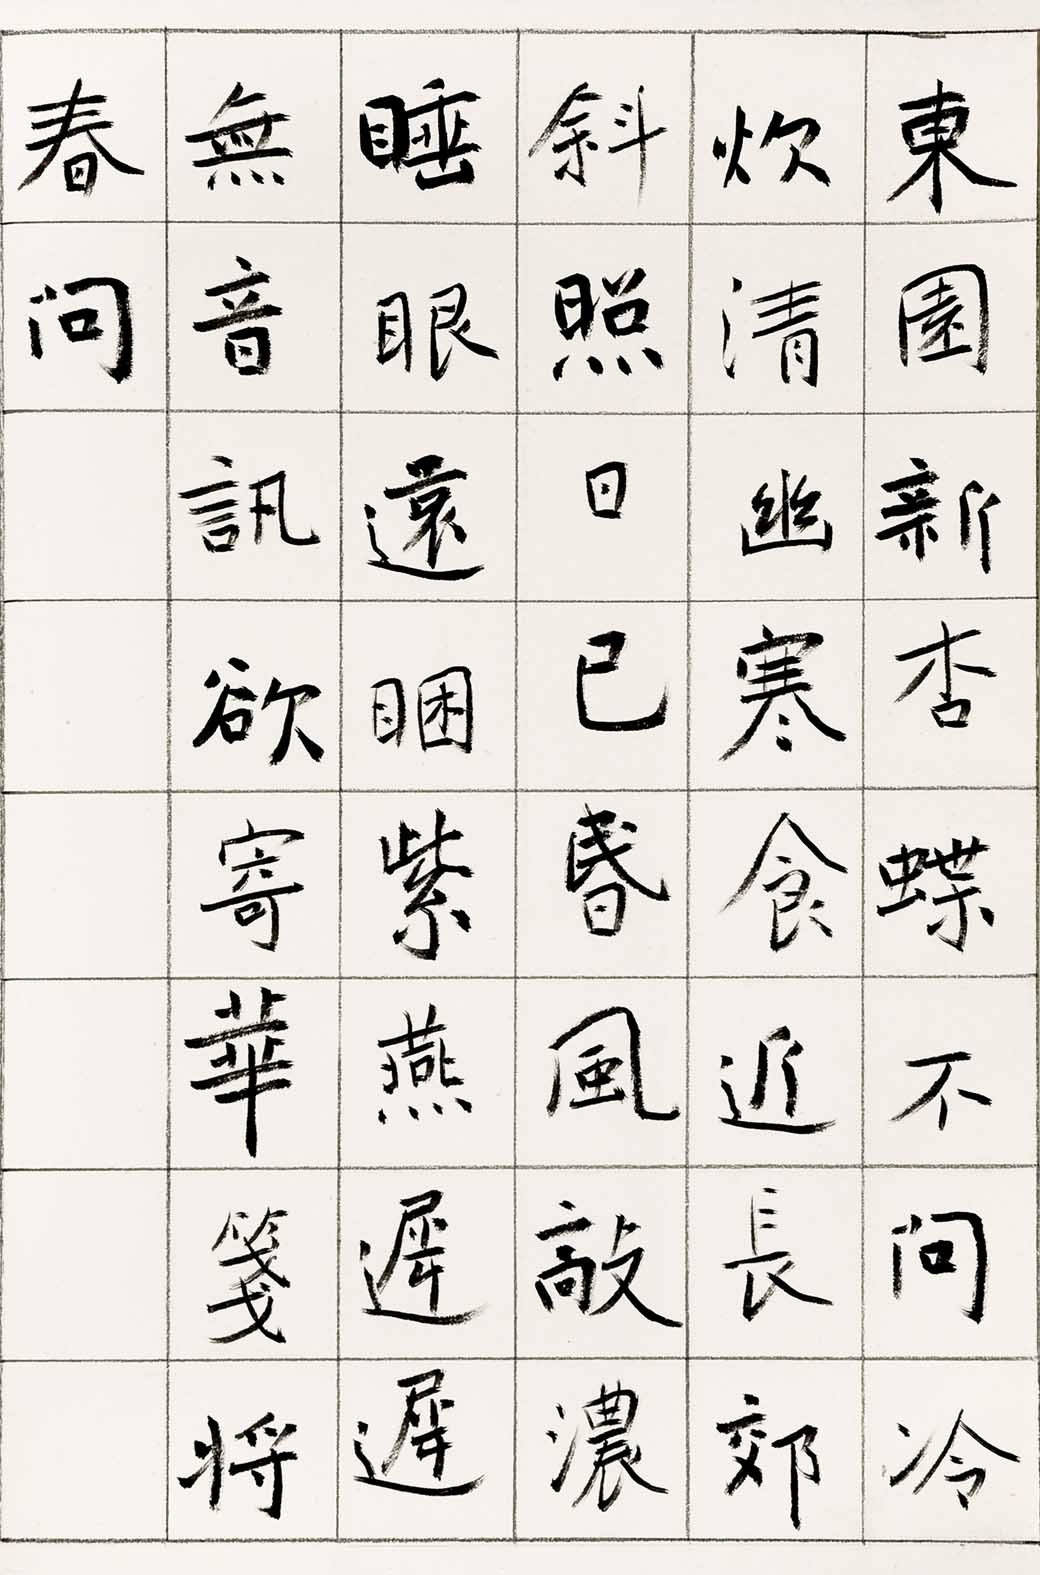 東園新杏蝶不問冷
炊清幽寒食近長郊
斜照日已昏風敲濃
睡眼還睏紫燕遲遲
無音訊欲寄華箋將
春問